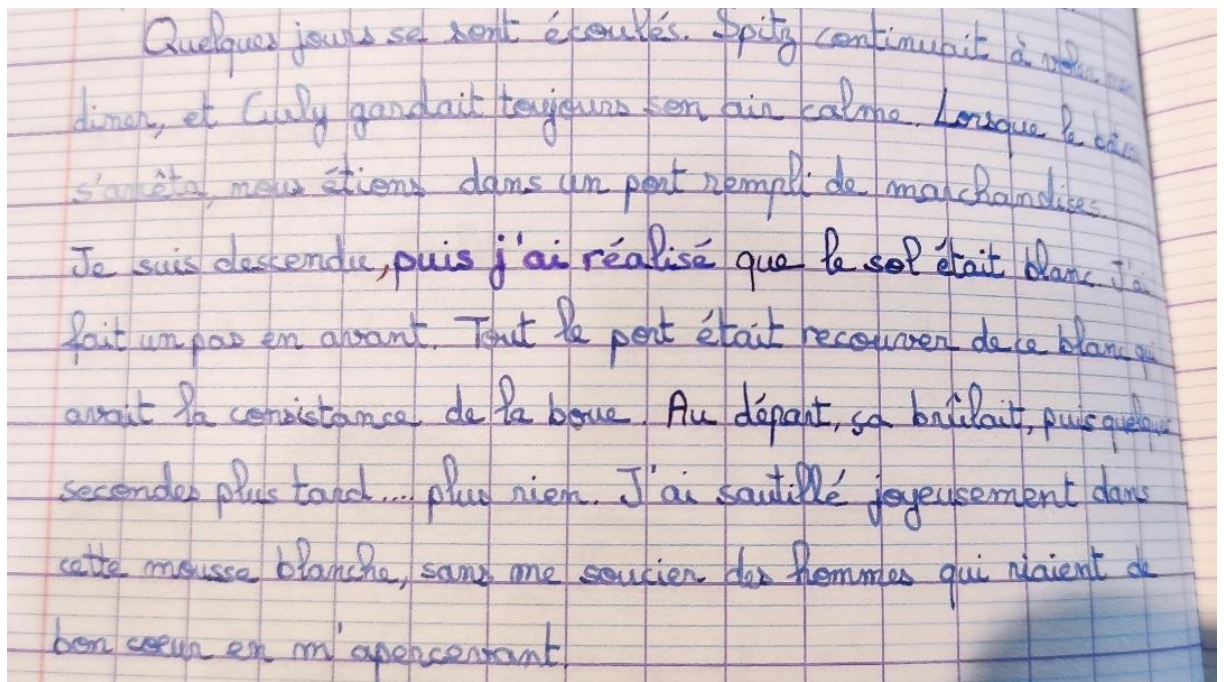 Quelques jours se sont écoulés. Spitz continuait à voler mon
diner, et Curly gardait toujours son air calme. Lorsque le
s'arrêta, nous étions dans un port rempli de marchandises.
Je suis descendu, puis j'ai réalisé que le sol était blanc. J'ai
fait un pas en avant. Tout le port était recouver de ce blanc qui
avait la consistance de la boue. Au départ, ça brûlait, puis quelques
secondes plus tard.... plus rien. J'ai sautillé joyeusement dans
cette mousse blanche, sans me soucier des hommes qui riaient de
bon coeur en m'apercevant.